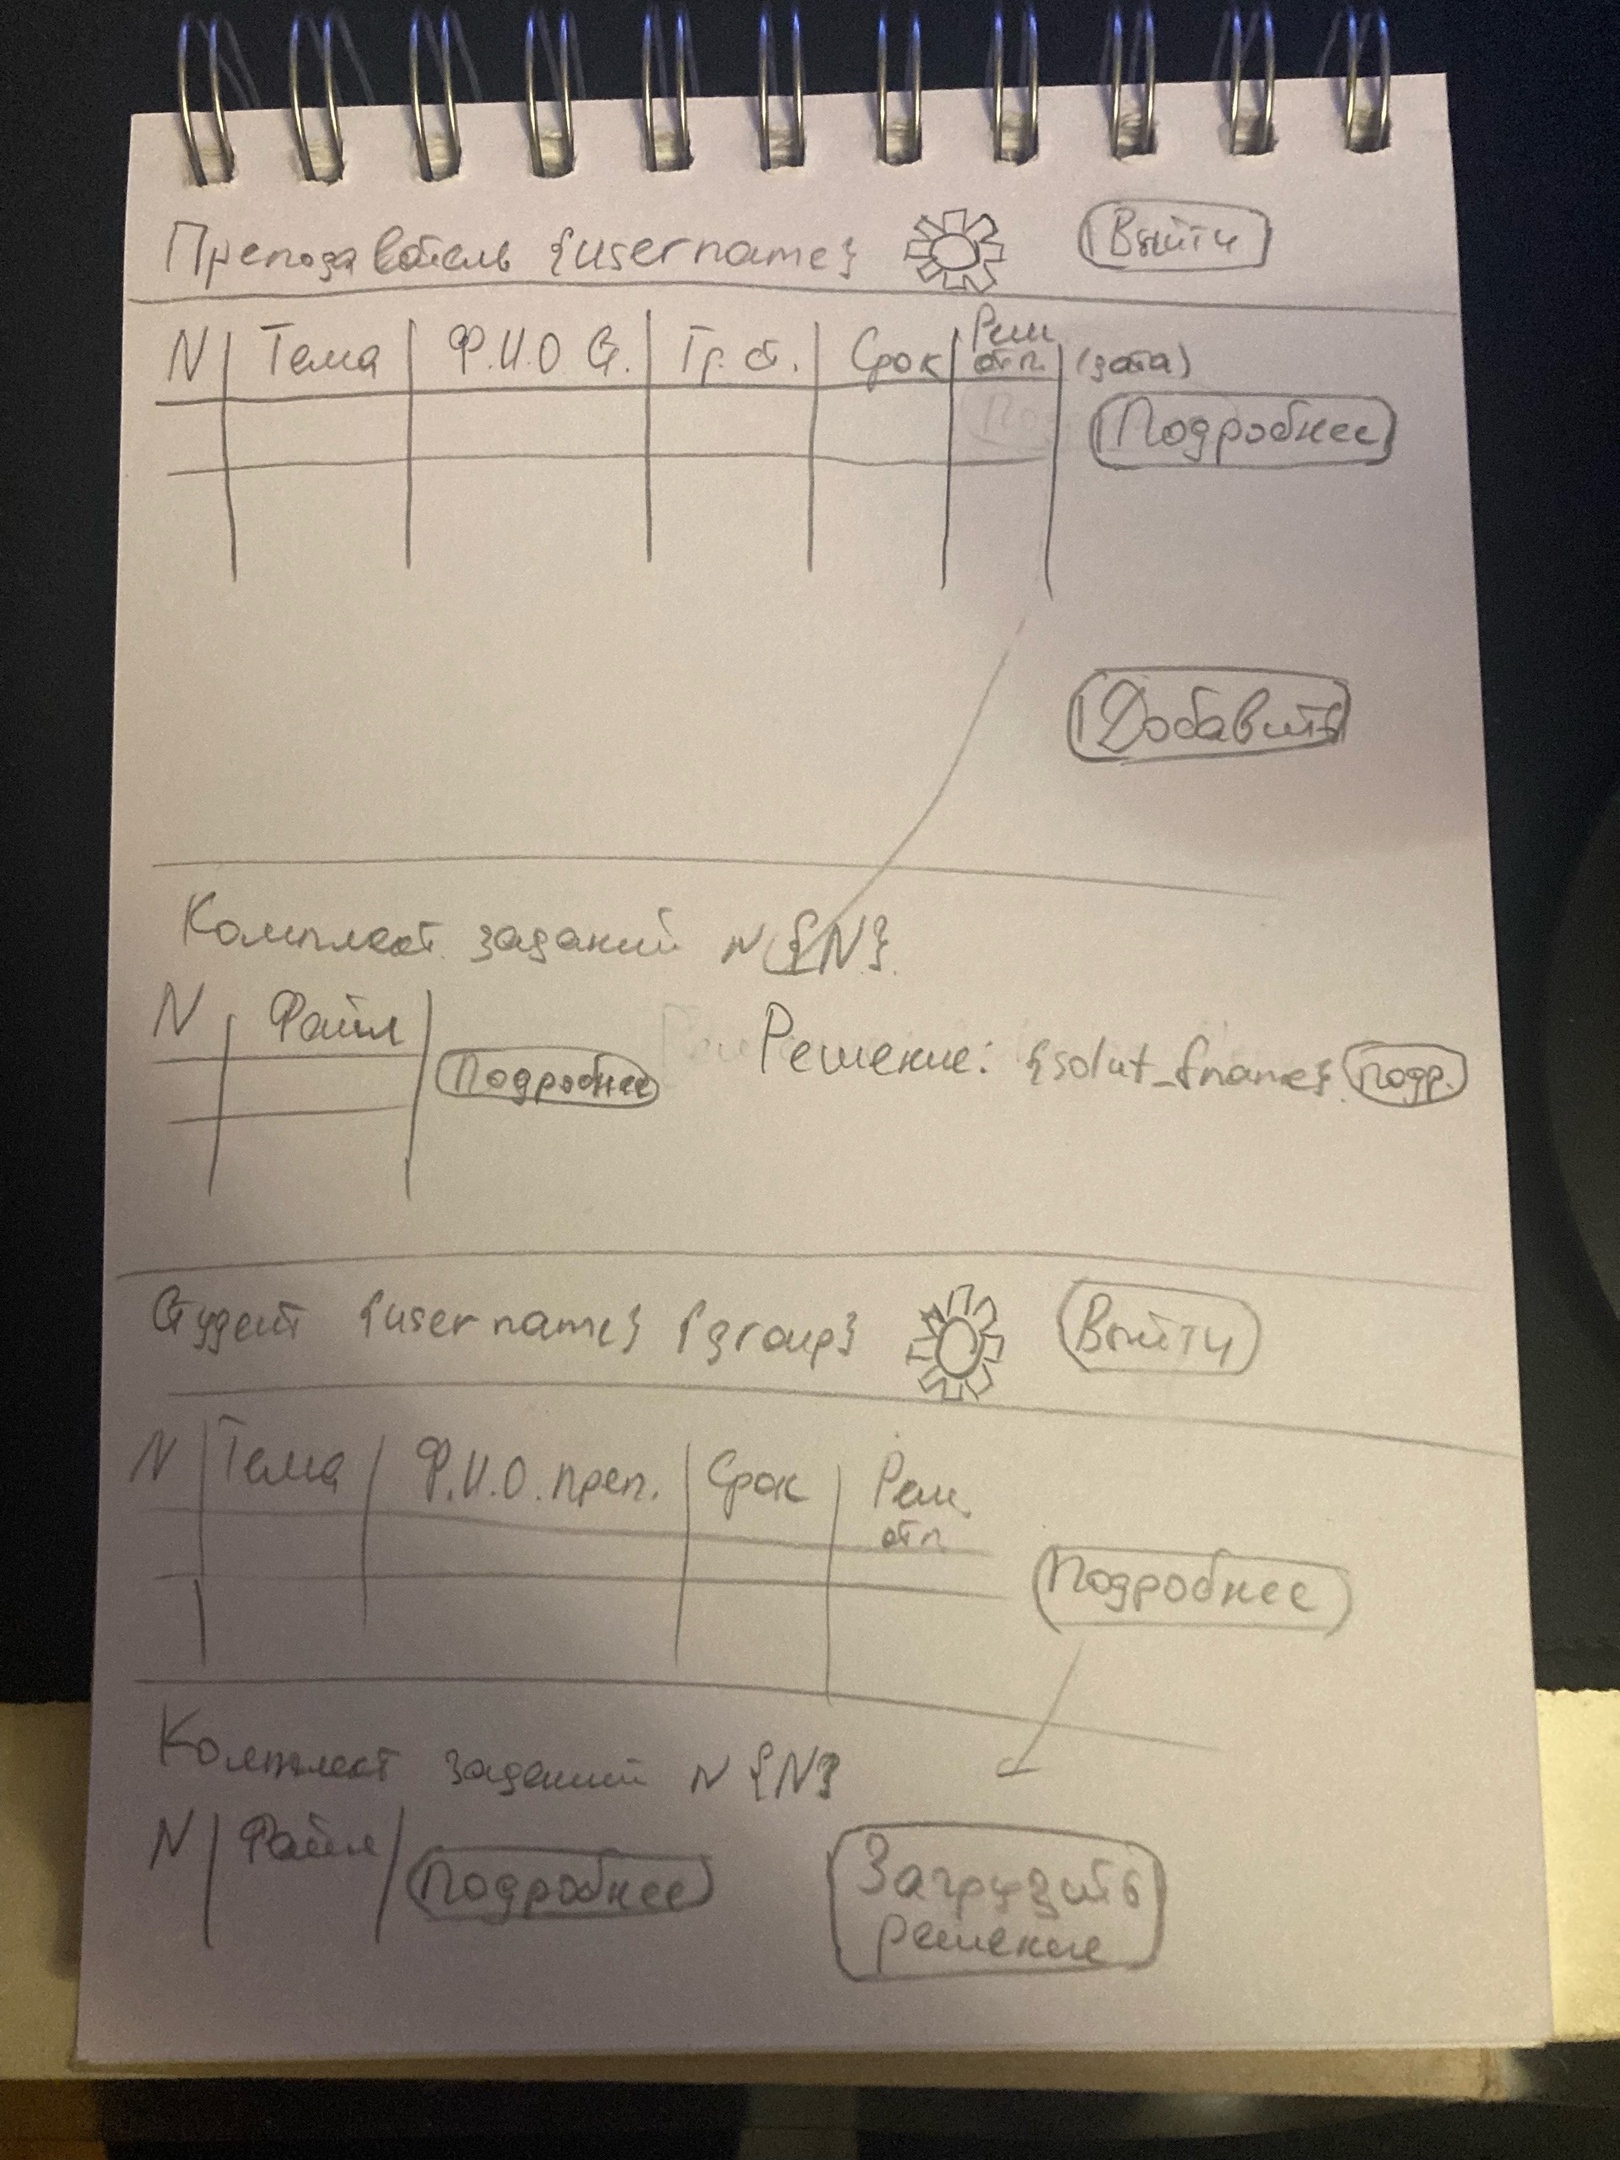 Преподаватель {username} Выйти
N Тема Ф.И.О Ст. Гр. ст. Срок Реш отп. (дата)
Подробнее
Добавить
Комплект заданий N {N}
N Файл
Подробнее Решение: {solut_fname} подр.
Студент {username} {group} Выйти
N Тема Ф.И.О. преп. Срок Реш. отп
Подробнее
Комплект заданий N {N}
N Файл Подробнее Загрузить
решение